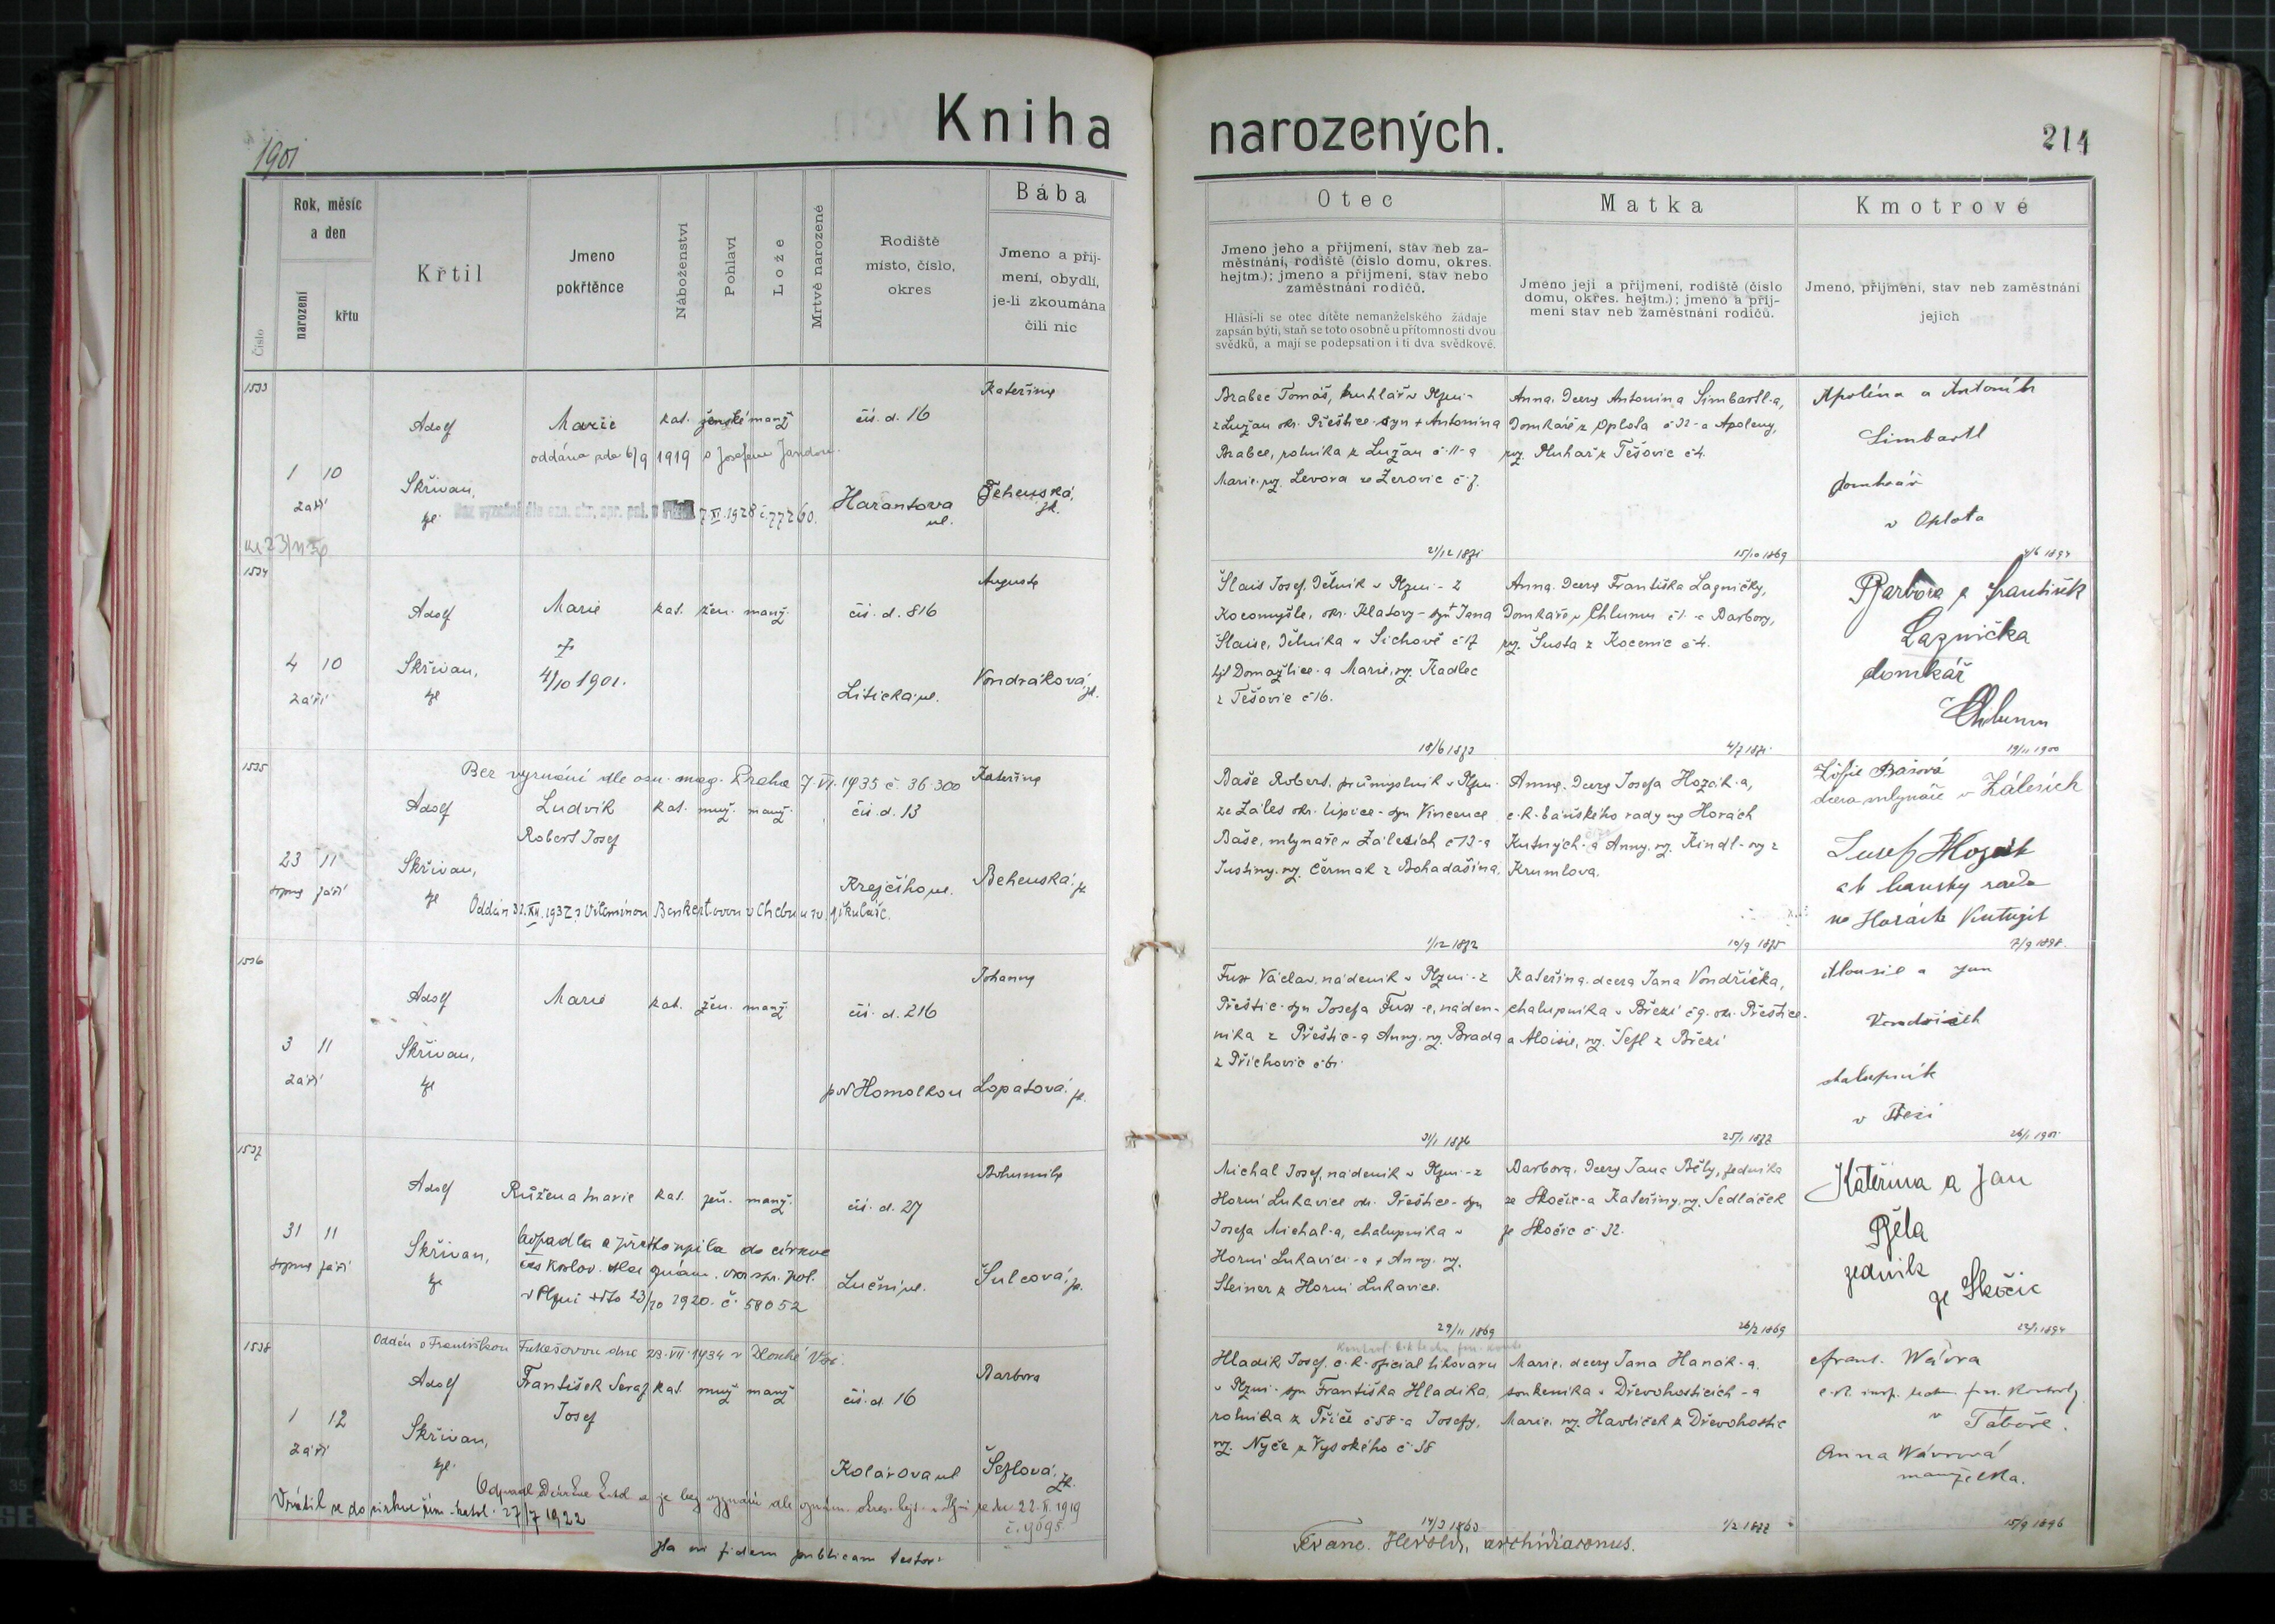 Kniha narozených.
1901
214
Číslo
Rok, měsíc
a den
narození
křtu
Křtil
Jmeno
pokřtěnce
Náboženství
Pohlaví
Lože
Mrtvě narozené
Rodiště
místo, číslo,
okres
Bába
Jmeno a příj-
mení, obydlí,
je-li zkoumána
čili nic
Otec
Jmeno jeho a příjmení, stav neb za-
městnání, rodiště (číslo domu, okres.
hejtm.); jmeno a příjmení, stav nebo
zaměstnání rodičů.
Hlásí-li se otec dítěte nemanželského žádaje
zapsán býti, staň se toto osobně u přítomnosti dvou
svědků, a mají se podepsati on i ti dva svědkové.
Matka
Jmeno její a příjmení, rodiště (číslo
domu, okres. hejtm.); jmeno a příj-
mení stav neb zaměstnání rodičů.
Kmotrové
Jmeno, příjmení, stav neb zaměstnání
jejich
1533
1 10
září
Adolf
Skřivan,
Marie
oddána dne 6/9 1919 s Josefem Jandou.
kat. ženské manž
7.XI.1928 č. 77260.
čís. d. 16
Harantova
ul.
Kateřina
Brabec Tomáš, truhlář v Plzni -
z Lužan okr. Přeštice - syn + Antonína
Brabce, rolníka z Lužan č 11 - a
Marie, roz. Levora ze Žerovic č 7.
21/12 1871
Anna, dcera Antonína Šimbartl-a,
domkáře z Oplota č 32 - a Apoleny,
roz. Pluhař z Těšovic č 4.
15/10 1869
Apolena a Antonín
Šimbartl
domkář
v Oplotě
4/6 1894
1534
4 10
září
Adolf
Skřivan,
Marie
4/10 1901.
kat. žen. manž.
čís. d. 816
Litická ul.
Augusta
Vondráková
Šlais Josef, dělník v Plzni - z
Kocomyšle, okr. Klatovy - syn + Jana
Šlaise, dělníka v Sichově č 17
hjt Domažlice - a Marie, roz. Kadlec
z Těšovic č 16.
18/6 1873
Anna, dcera Františka Lazničky,
domkáře v Chlumu č 1 - a Barbory,
roz. Šusta z Kocenic č 4.
4/7 1871
Barbora a František
Laznička
domkář
Chlumu
19/11 1900
1535
23 11
srpna září
Bez vyznání dle osn. mag. Praha 7.VI.1935 č. 36.300
Adolf
Skřivan,
Ludvík
Robert Josef
kat. muž. manž.
čís. d. 13
Krejčího ul.
Kateřina
Behenská
Oddán 31.XII.1937 s Vilemínou Benkertovou v Chebu u sv. Mikuláše.
Baše Robert, průmyslník v Plzni -
ze Záles okr. Upice - syn Vincence
Baše, mlynáře v Zálesích č 12 - a
Justiny, roz. Čermák z Bohadašína.
1/12 1872
Anna, dcera Josefa Hozák-a,
c. k. báňského rady na Horách
Kutných - a Anny, roz. Kindl - roz z
Krumlova.
10/9 1875
Žofie Bašová
dcera mlynáře v Zálesích
Josef Hozák
ck. báňský rada
na Horách Kutných
7/9 1898.
1536
3 11
září
Adolf
Skřivan,
Marie
kat. žen. manž
čís. d. 216
pod Homolkou
Johanna
Lopatová
Fux Václav, nádeník v Plzni - z
Přeštic - syn Josefa Fux-e, náden-
níka z Přeštic - a Anny, roz. Brada
z Příchovic č 61
31/1 1876
Kateřina, dcera Jana Vondřička,
chalupníka v Březí č 9. okr. Přeštice -
a Aloisie, roz. Šefl z Březí
25/1 1877
Aloisie a Jan
Vondřiček
chalupník
v Březí
26/1 1901
1537
31 11
srpna září
Adolf
Skřivan,
Růžena Marie
odpadla a přestoupila do církve
českoslov. dle oznám. okr. spr. pol.
v Plzni ddto 23/10 1920. č. 58052
kat. žen. manž.
čís. d. 27
Luční ul.
Bohumila
Šulcová
Michal Josef, nádeník v Plzni - z
Horní Lukavice okr. Přeštice - syn
Josefa Michal-a, chalupníka v
Horní Lukavici - a + Anny, roz.
Steiner z Horní Lukavice.
29/11 1869
Barbora, dcera Jana Běly, zedníka
ze Skočic - a Kateřiny, roz. Sedláček
ze Skočic č 32.
26/2 1869
Kateřina a Jan
Běla
zedník
ze Skočic
1538
1 12
září
Oddán s Františkou Fukešovou dne 23.VII.1934 v Dlouhé Vsi.
Adolf
Skřivan,
František Seraf
Josef
kat. muž manž
čís. d. 16
Kolárova ul
Barbora
Šezlová
22.II.1919
Vrátil se do církve řím. katol. 27/7 1922
Hladík Josef, c. k. oficiál lihovaru
v Plzni - syn Františka Hladíka,
rolníka z Tříče č 58 - a Josefy,
roz. Nyče z Vysokého č 38
14/3 1863
Marie, dcera Jana Hanák-a,
soukeníka v Dřevohosticích - a
Marie, roz. Havlíček z Dřevohostic
1/2 1877
Frant. Wávra
v Táboře.
Anna Wávrová
manželka.
15/9 1896
Ita in fidem publicam testor:
Franc. Herold, archidiaconus.